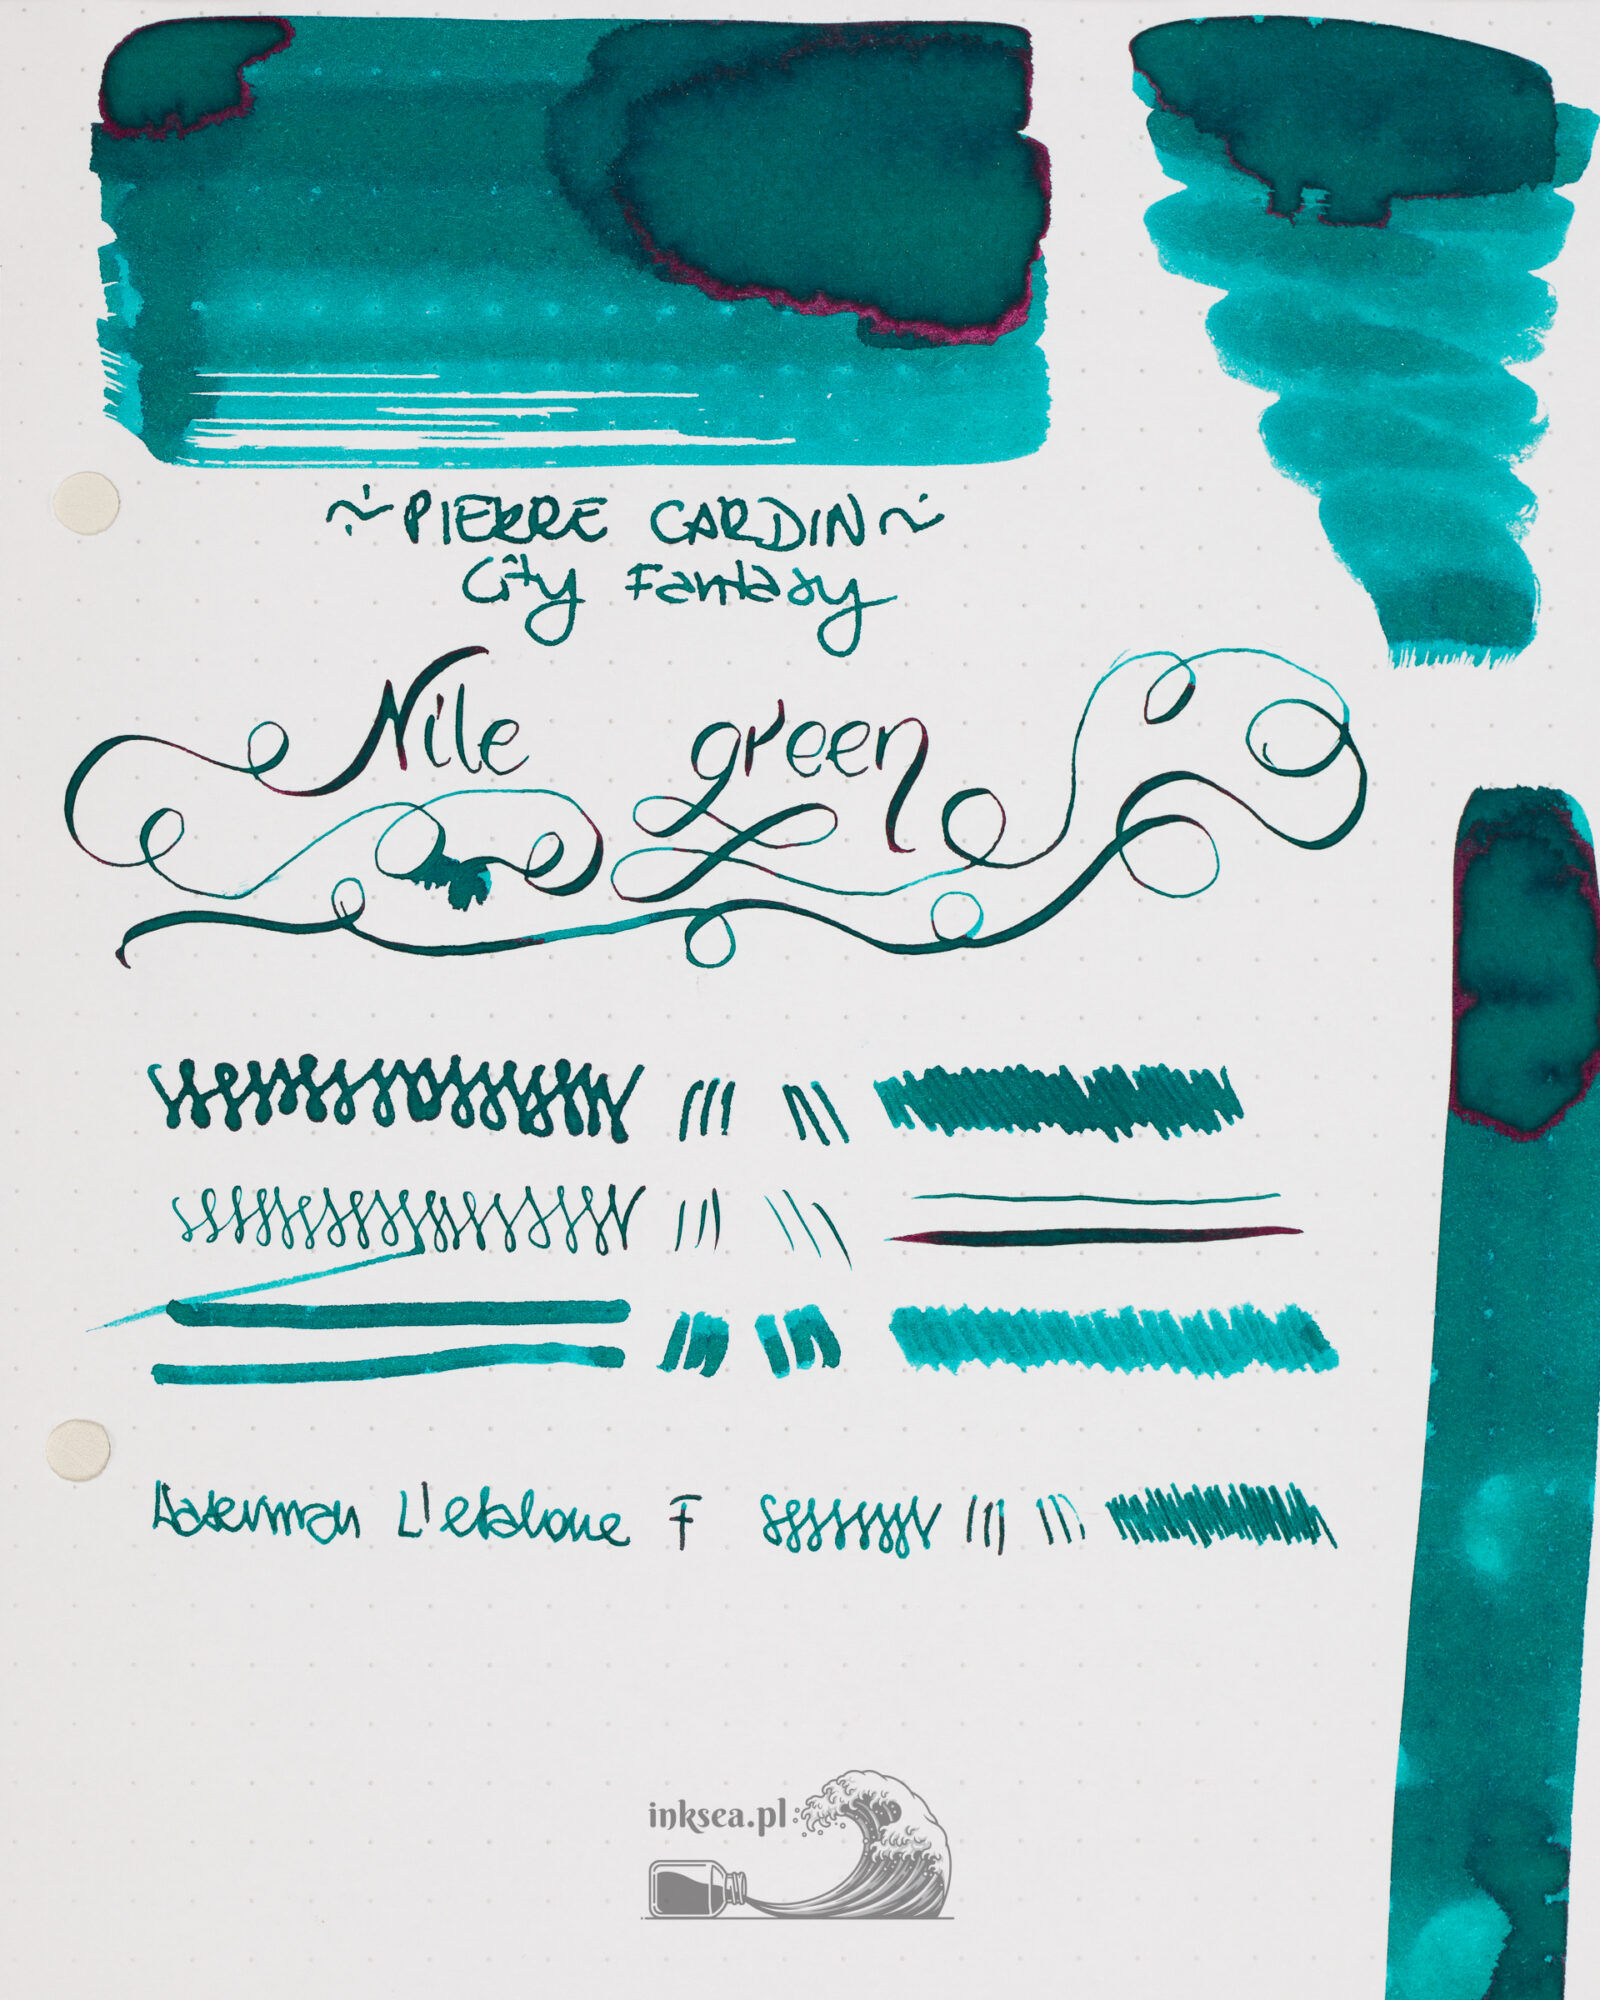 ~PIERRE CARDIN~
City Fantasy
Nile green
Waterman L'etalone F
inksea.pl